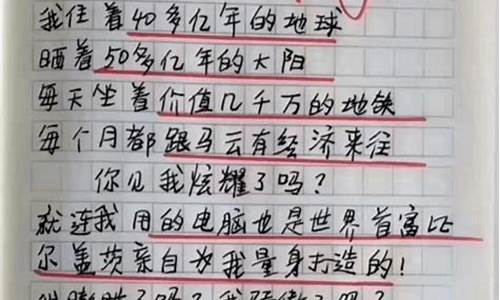 我住着40多亿年的地球
晒着50多亿年的太阳
每天坐着价值几千万的地铁
每个月都跟马云有经济来往
你见我炫耀了吗?
就连我用的电脑也是世界首富比
尔盖茨亲自为我量身打造的!